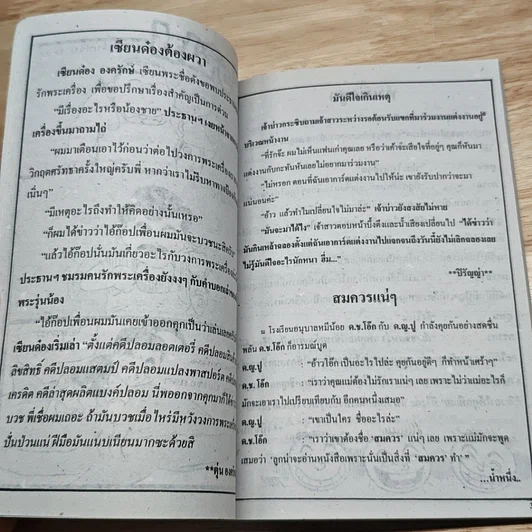 เซียนด๋องต้องผวา
เซียนด๋อง องครักษ์ เซียนพระชื่อดังขอพบประธาน
รักพระเครื่อง เพื่อขอปรึกษาเรื่องสำคัญเป็นการด่วน
"มีเรื่องอะไรหรือน้องชาย" ประธานฯ เงยหน้า
เครื่องขึ้นมาถามไถ่
"ผมมาเตือนเอาไว้ก่อนว่าต่อไปวงการพระเครื่อง
วิกฤตศรัทธาครั้งใหญ่ครับพี่ หากว่าเราไม่รีบหาทาง
เนิ่นๆ"
"มีเหตุอะไรถึงทำให้คิดอย่างนั้นเหรอ"
"ก็ผมได้ข่าวว่าไอ้ก๊อปเพื่อนผมมันจะบวชนะสิครับ"
"แล้วไอ้ก๊อปนั่นมันเกี่ยวอะไรกับวงการพระเครื่อง
ประธานฯ ชมรมคนรักพระเครื่องยังงงๆ กับคำบอกเล่า
พระรุ่นน้อง
"ไอ้ก๊อปเพื่อนผมมันเคยเข้าออกคุกเป็นว่าเล่นเลย
เซียนด๋องเริ่มเล่า "ตั้งแต่คดีปลอมลอตเตอรี่ คดีปลอม
ลิขสิทธิ์ คดีปลอมแสตมป์ คดีปลอมแปลงพาสปอร์ต คดี
เครดิต คดีล่าสุดผลิตแบงค์ปลอม นี่พอออกจากคุกมาก็
บวช พี่ชื่อผมเถอะ ถ้ามันบวชเมื่อไหร่มีหวังวงการพระ
ปั่นป่วนแน่ ฝีมือมันแนบเนียนมากซะด้วยสิ
**ตุ่น
บันดีใจเกินเหตุ
เจ้าบ่าวกระซิบถามเจ้าสาวระหว่างรอต้อนรับแขกที่มาร่วมงานแต่งงานอยู่
บริเวณหน้างาน
"ที่รักจ๊ะ ผมไม่เห็นแฟนเก่าคุณเลย หรือว่าเค้าจะเสียใจที่อยู่ๆ คุณก็หันมา
แต่งงานกับกะทันหันเลยไม่อยากมาร่วมงาน"
"ไม่หรอก ตอนที่ฉันเอาการ์ดแต่งงานไปให้น่ะ เขายังรับปากว่าจะมา
แน่นอนค่ะ"
"อ้าว แล้วทำไมเปลี่ยนใจไม่มาล่ะ" เจ้าบ่าวยังสงสัยไม่หาย
"มันจะมาได้ไง" เจ้าสาวตอบหน้าบึ้งตึงและน้ำเสียงเปลี่ยนไป "ได้ข่าวว่า
มันดีนเหล้าฉลองตั้งแต่ฉันเอาการ์ดแต่งงานไปแจกจนถึงวันนี้ยังไม่เลิกฉลองเลย
ไม่รู้มันดีใจอะไรนักหนา ฮึ่ม..."
**ปิรัญญ่า**
สมควรแน่ๆ
โรงเรียนอนุบาลหมีน้อย ด.ช.โอ๊ก กับ ด.ญ.ปู กำลังคุยกันอย่างสดชื่น
พลัน ด.ช.โอ๊ก ก็อารมณ์บูด
ด.ญ.ปู : "อ้าวโอ๊ก เป็นอะไรไปล่ะ คุยกันอยู่ดีๆ ก็ทำหน้าเศร้าๆ"
ด.ช.โอ๊ก : "เราว่าคุณแม่ต้องไม่รักเราแน่ๆ เลย เพราะไม่ว่าแม่อะไรที่
มักจะเอาเราไปเปรียบเทียบกับ อีกคนหนึ่งเสมอ"
ด.ญ.ปู : "เขาเป็นใคร ชื่ออะไรล่ะ"
ด.ช.โอ๊ก : "เราว่าเขาต้องชื่อ 'สมควร' แน่ๆ เลย เพราะแม้มักจะพูด
เสมอว่า 'ลูกน่าจะอ่านหนังสือเพราะนั่นเป็นสิ่งที่ 'สมควร' ทำ' "
...น้ำหนึ่ง..